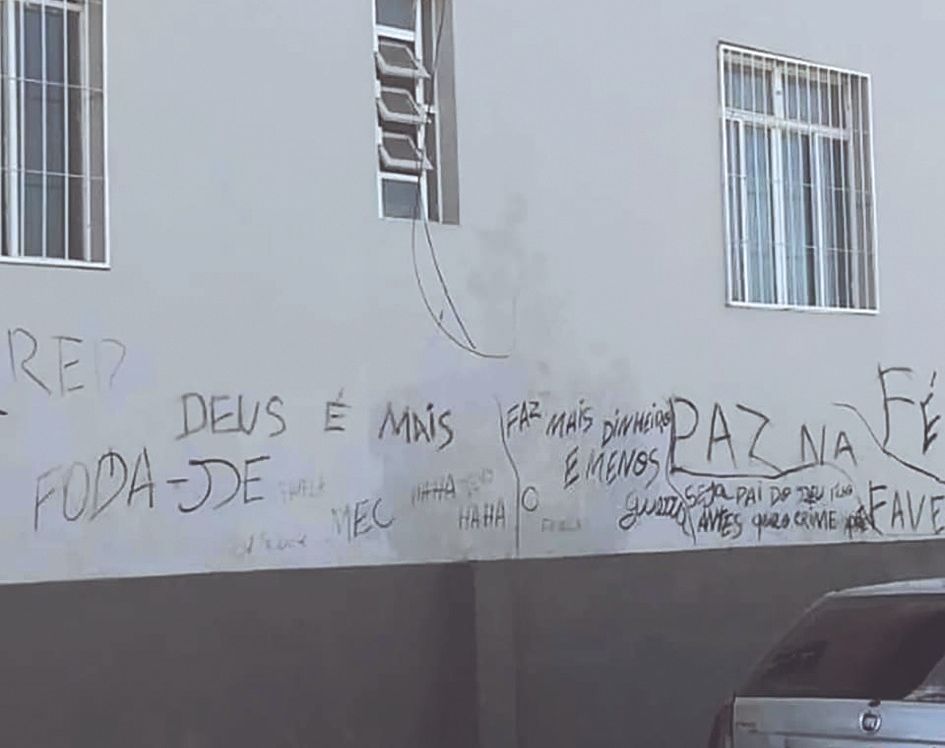 DEUS É MAIS
FODA-JDE
MEC
HAHA
HAHA
FAZ MAIS DINHEIRO
E MENOS
guerra
PAZ NA
FAVE
SEJA PAI DO SEU FILHO
ANTES QUE O CRIME
FÉ